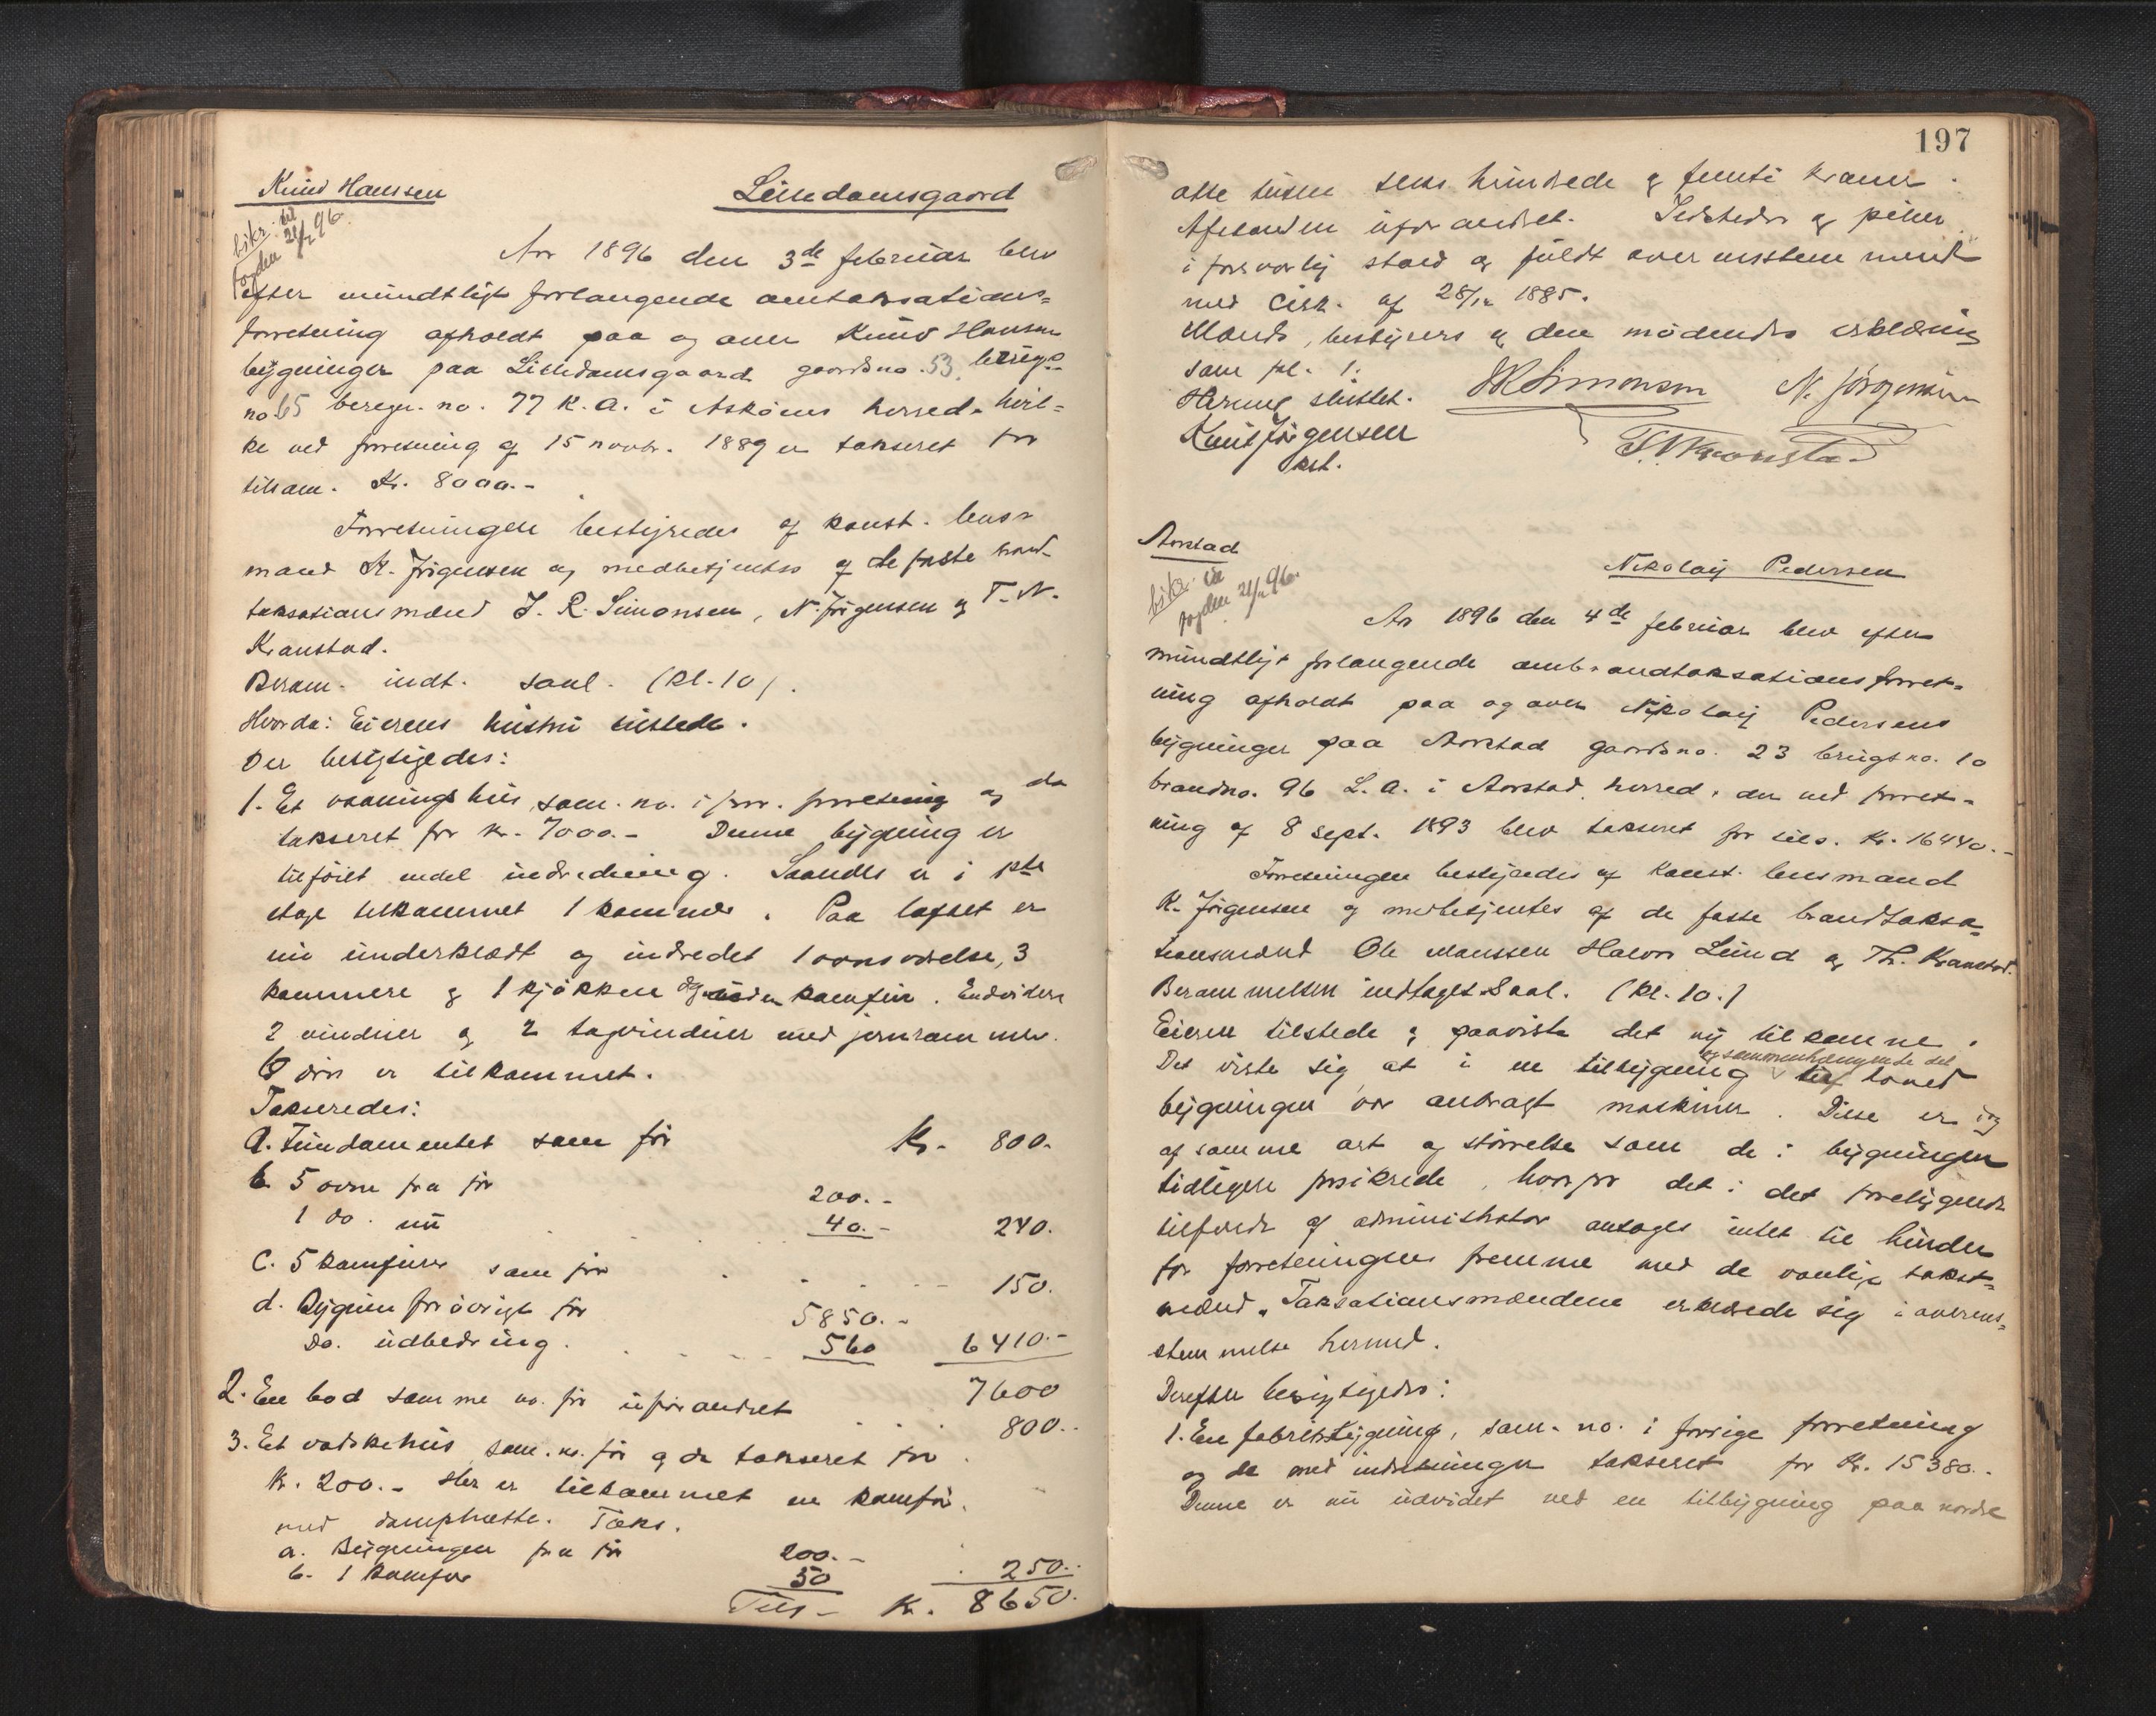 Knud Hanssen
Lindamsgaard
bskr. til
fogden 21/2 96.
Aar 1896 den 3de februar blev
efter mundtligt forlangende omtaksations-
forretning afholdt paa og over Knud Hansens
bygninger paa Lindamsgaard gaardsno. 53, brugs-
no. 65 beregn. no. 77 K. a. i Askøens herred, hvil-
ke ved forretning af 15 novbr. 1889 er takseret for
tilsam. Kr. 8000.-
Forretningen bestyredes af konst. lens-
mand K. Jørgensen og medbetjentes af de faste brand-
taksationsmænd J. R. Simonsen, N. Jørgensen og T. N.
Kronstad.
Beram. indt. saal. (kl. 10).
Hvorda: Eierens hustru tilstede.
Der besigtigedes:
1. Et vaaningshus, sam. no. i forr. forretning og da
takseret for kr. 7000.- Denne bygning er
tilføiet endel indredning. Saaledes er i 1ste
etage tilkommet 1 kammer. Paa loftet er
nu underklædt og indredet 1 ovnsværelse, 3
kammere og 1 kjøkken uden komfur. Endvidere
2 vinduer og 2 tagvinduer med jernrammer.
6 døre er tilkommet.
Takseredes:
a. Fundamentet som før Kr. 800.
b. 5 ovne fra før 200.-
1 do. nu 40.- 240.
c. 5 komfurer som før 150.
d. Bygnin forøvrigt før 5850.-
do. udbedring. 560 6410.-
7600
2. En bod samme no. før uforandret 800..
3. Et vadskehus, sam. no. før og da takseret for
kr. 200.- Her er tilkommet en komfur
med damphætte. Taks.
a. Bygningen fra før 200.-
b. 1 komfur 50 250.-
Tils- Kr. 8650.
197
otte tusen seks hundrede og femti kroner.
Afstanden uforandret. Ildsteder og piber
i forsvarlig stand og fuldt overensstemmende
med cirk. af 28/12 1885.
Mænds, bestyrers og den mødendes erklæring
som pkt. 1.
Herved sluttet.
JRSimonsen N. Jørgensen
Knut Jørgensen
kst.
T.N.Kronstad
Aarstad
Nikolay Pedersen
bskr. til
fogden 21/2 96.
Aar 1896 den 4de februar blev efter
mundtligt forlangende ombrandtaksationsforret-
ning afholdt paa og over Nikolay Pedersens
bygninger paa Aarstad gaardsno. 23 brugsno. 10
brandno. 96 L. a. i Aarstad herred, der ved forret-
ning af 8 sept. 1893 blev takseret for tils. Kr. 16440.-
Forretningen bestyredes af konst. lensmand
K. Jørgensen og medbetjentes af de faste brandtaksa-
tionsmænd Ole Monssen Halvor Lund og Th. Kronstad.
Berammelsen indtaget Saal. (kl. 10.)
Eieren tilstede og paaviste det ny tilkomne.
Det viste sig, at i en tilbygning og sammenhængende del til hoved
bygningen var anbragt maskiner. Disse er dog
af samme art og størrelse som de i bygningen
tidligere forsikrede, hvorfor det i det foreliggende
tilfælde af administrator antoges intet til hinder
for forretningens fremme med de vanlige takst-
mænd. Taksationsmændene erklærede sig i overens-
stemmelse hermed.
Derefter besigtigedes:
1. En fabrikbygning, sam. no. i forrige forretning
og da med indretninger takseret for Kr. 15380..
Denne er nu udvidet ved en tilbygning paa nordre